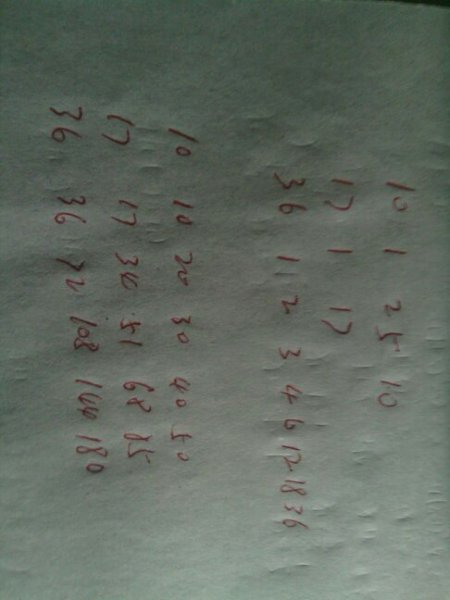 10 1 2 5 10
17 1 17
36 1 2 3 4 6 12 18 36
10 10 20 30 40 50
17 17 34 51 68 85
36 36 72 108 144 180